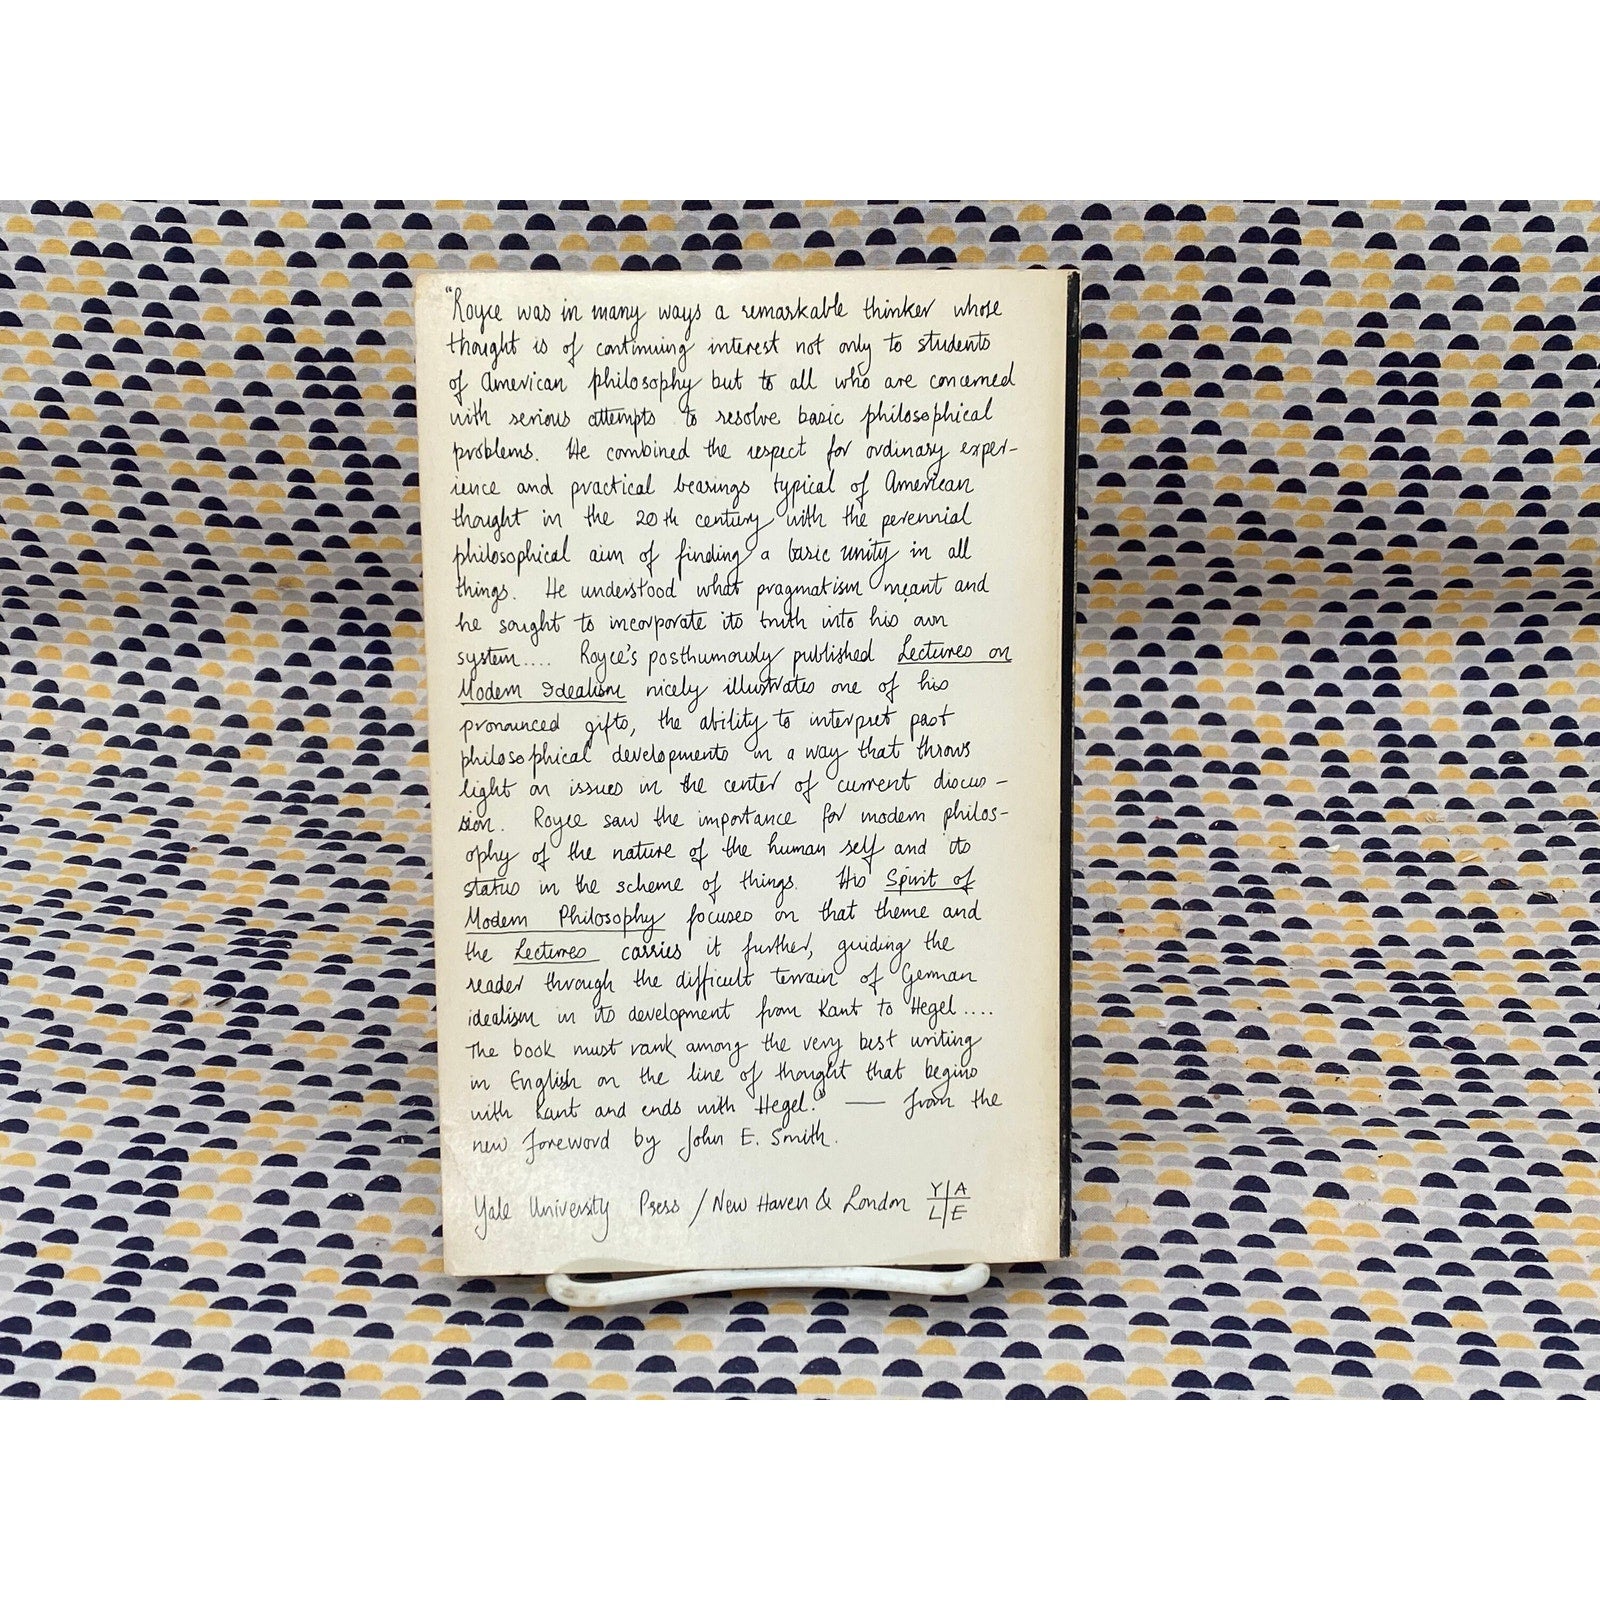 "Royce was in many ways a remarkable thinker whose
thought is of continuing interest not only to students
of American philosophy but to all who are concerned
with serious attempts to resolve basic philosophical
problems. He combined the respect for ordinary exper-
ience and practical bearings typical of American
thought in the 20th century with the perennial
philosophical aim of finding a basic unity in all
things. He understood what pragmatism meant and
he sought to incorporate its truth into his own
system.... Royce's posthumously published Lectures on
Modern Idealism nicely illustrates one of his
pronounced gifts, the ability to interpret past
philosophical developments in a way that throws
light on issues in the center of current discus-
sion. Royce saw the importance for modern philos-
ophy of the nature of the human self and its
status in the scheme of things. His Spirit of
Modern Philosophy focuses on that theme and
the Lectures carries it further, guiding the
reader through the difficult terrain of German
idealism in its development from Kant to Hegel....
The book must rank among the very best writing
in English on the line of thought that begins
with Kant and ends with Hegel." — from the
new foreword by John E. Smith.
Yale University Press / New Haven & London Y A
L E